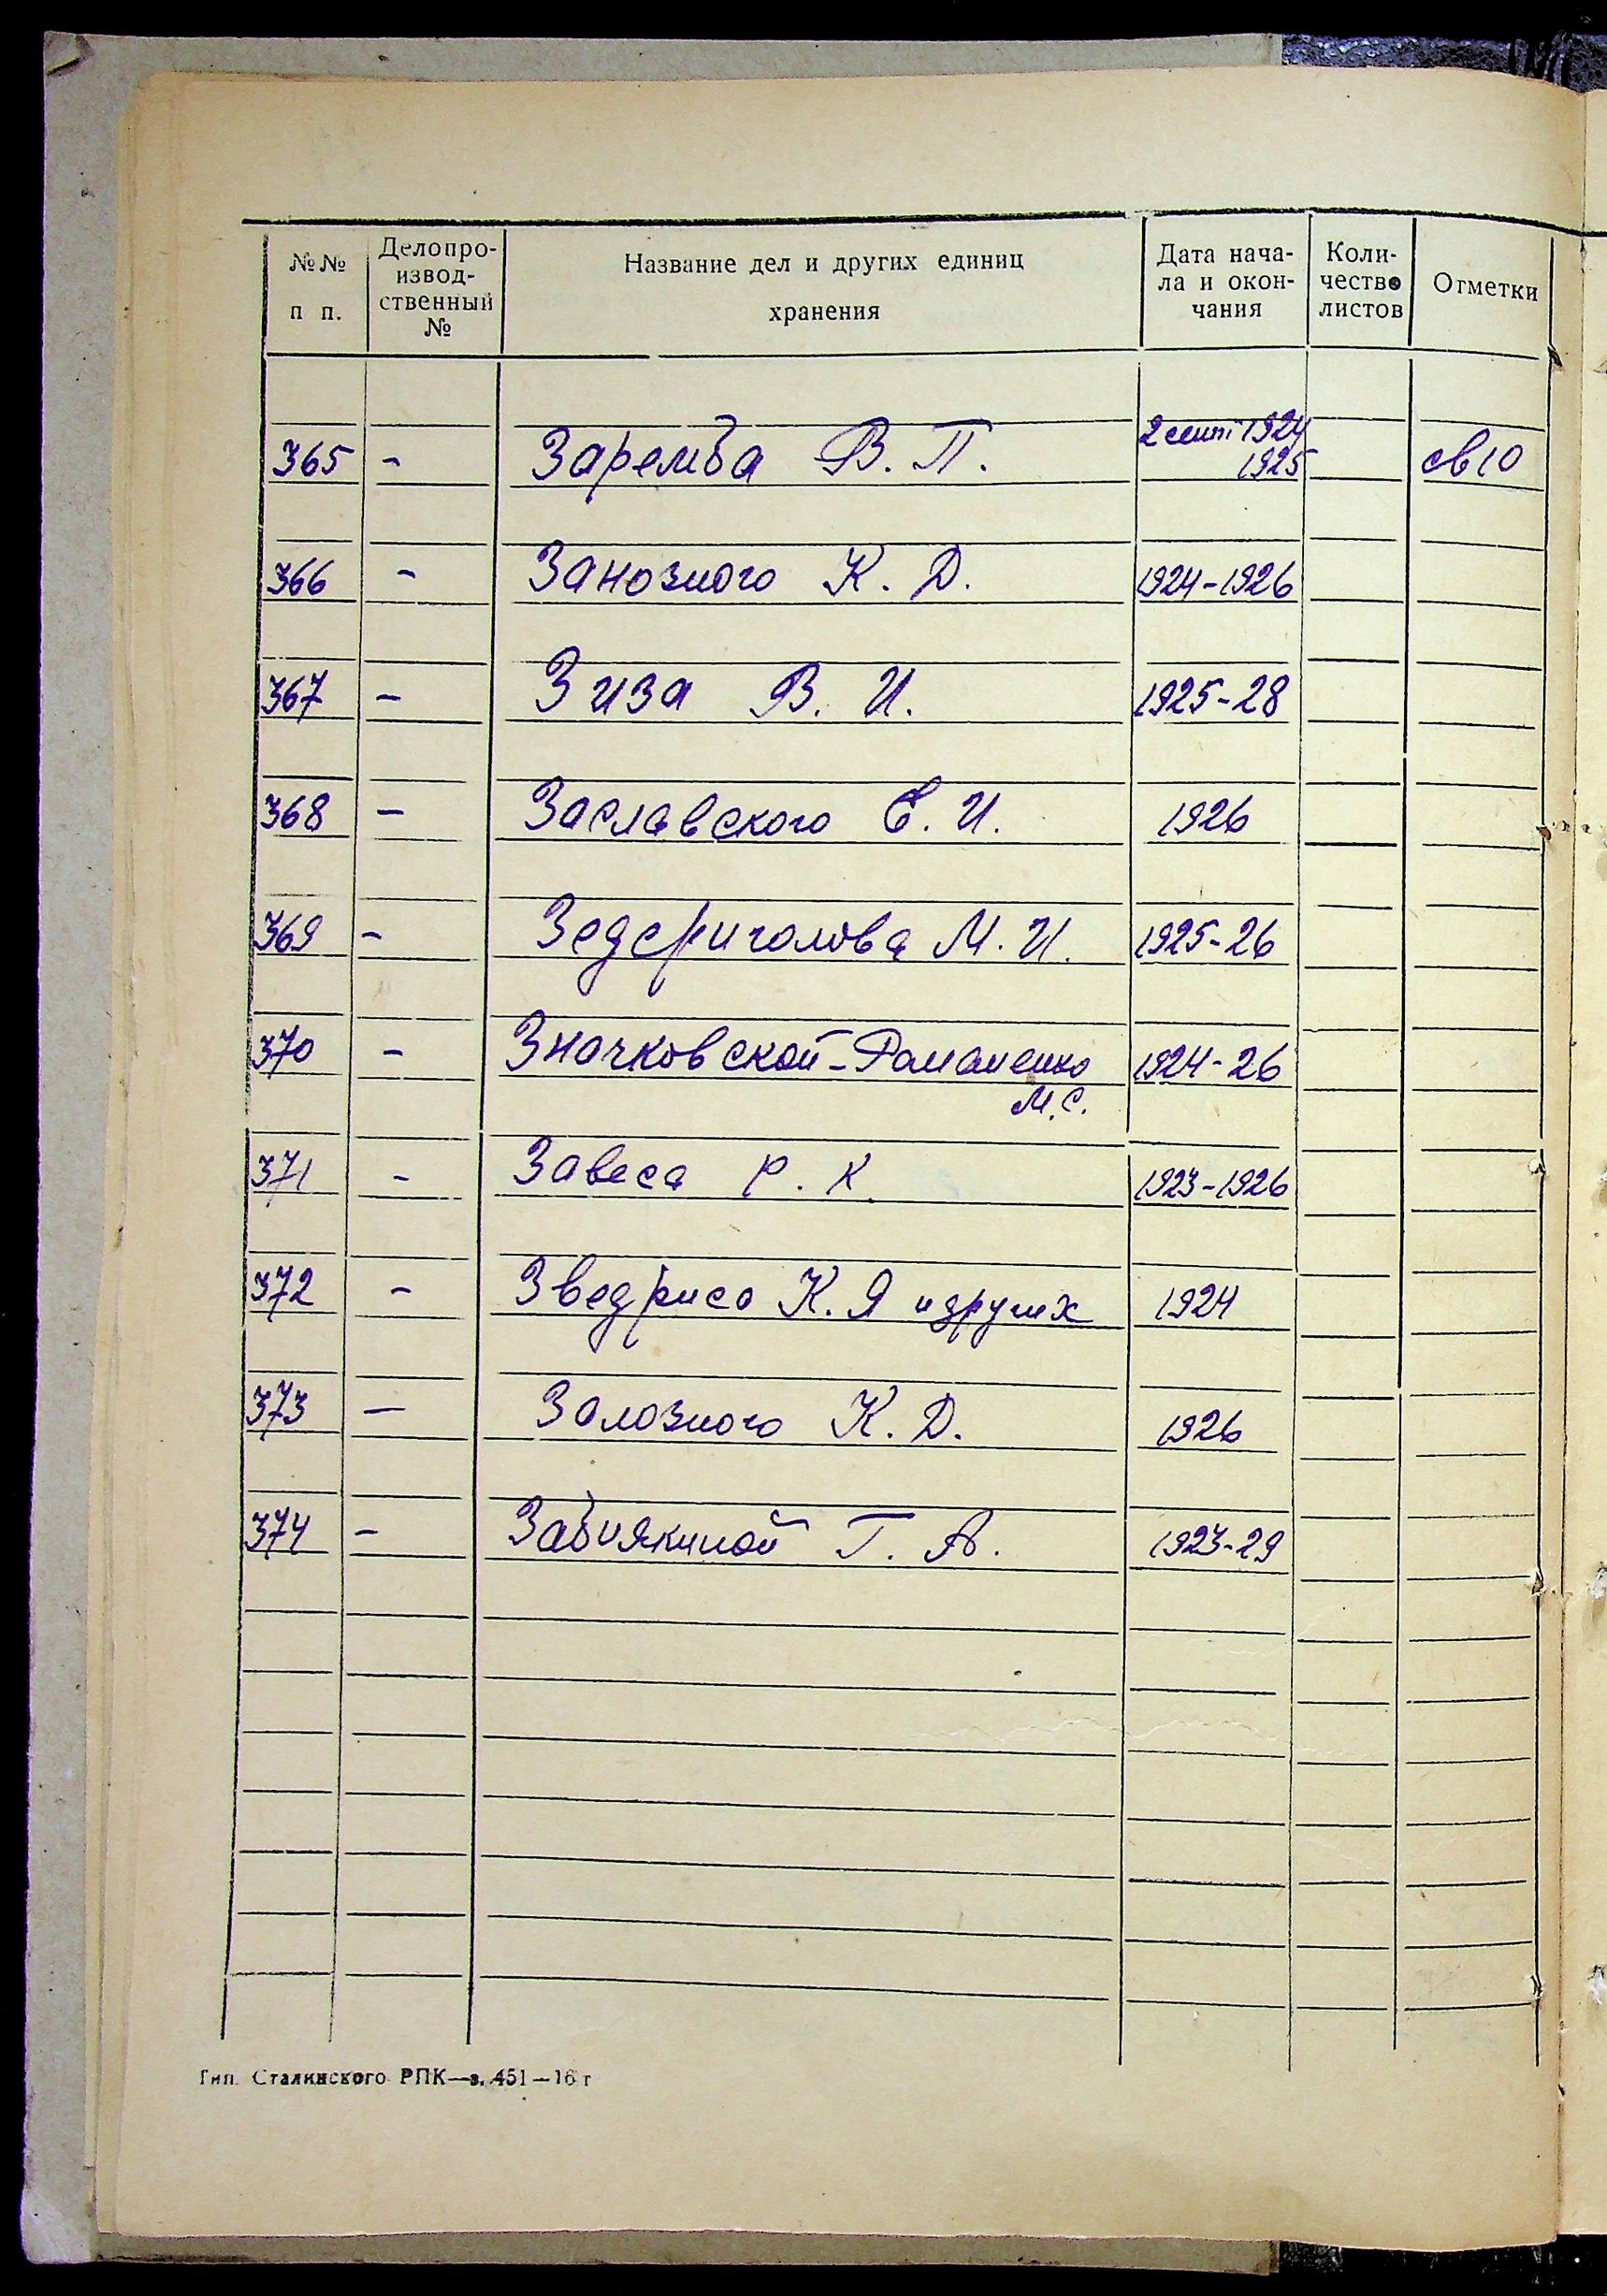 №№ п п. | Делопроизвод-ственный № | Название дел и других единиц хранения | Дата нача-ла и окон-чания | Коли-чество листов | Отметки
365 - Заремба В. П. 2 сент 1924 1925 св 10
366 - Занозного К. Д. 1924-1926
367 - Зиза В. И. 1925-28
368 - Заславского Е. И. 1926
369 - Зедериголова М. И. 1925-26
370 - Значковской-Романенко 1924-26
М.С.
371 - Завеса Р. К. 1923-1926
372 - Зведриса К. Я и других 1924
373 - Залозного К. Д. 1926
374 - Забиякиной Т. А. 1923-29
Тип. Сталинского РПК—з. 451—16 г